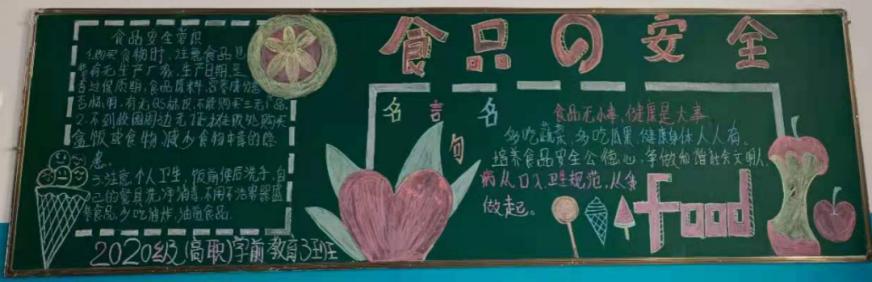 食品安全
食品安全常识
1.购买食物时,注意食品
有无生产厂家,生产日期,是
否过保质期,食品原料,营养成分
是否标明,有无QS标识,不能购买三无产品
2.不到校园周边无证摊贩处购买
盒饭或食物,减少食物中毒的隐
患。
3.注意个人卫生,饭前便后洗手,自
己的餐具洗净消毒,不用不洁容器盛
装食品,少吃油炸,油煎食品.
2020级(高职)学前教育3班
名言名句
食品无小事,健康是大事
多吃蔬菜,多吃瓜果,健康身体人人有。
培养食品安全公德心,争做和谐社会文明人.
病从口入,卫生规范,从
做起。
food